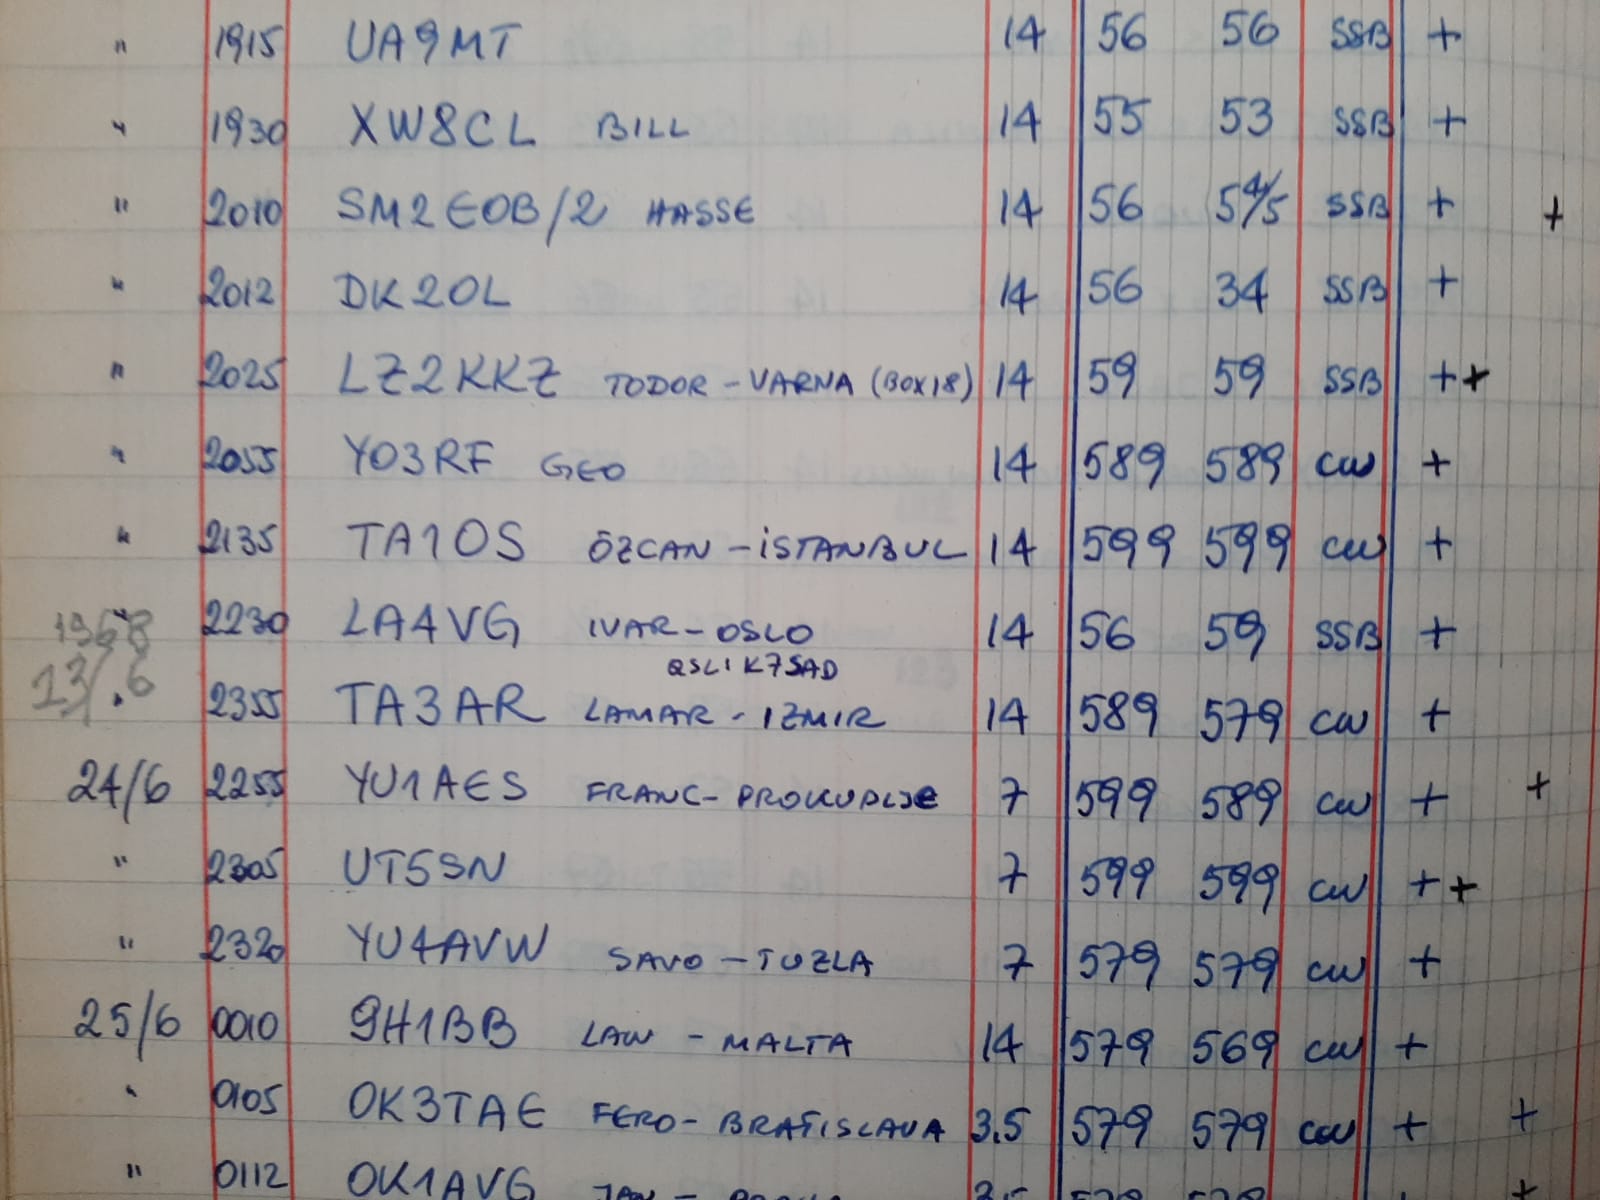 " 1915 UA9MT 14 56 56 SSB +
" 1930 XW8CL BILL 14 55 53 SSB +
" 2010 SM2EOB/2 HASSE 14 56 54/5 SSB + +
" 2012 DK2OL 14 56 34 SSB +
" 2025 LZ2KKZ TODOR - VARNA (BOX18) 14 59 59 SSB ++
" 2055 YO3RF GEO 14 589 589 CW +
" 2135 TA1OS ÖZCAN - İSTANBUL 14 599 599 CW +
1968 2230 LA4VG IVAR - OSLO 14 56 59 SSB +
QSL1K7SAD
23/.6 2355 TA3AR LAMAR - IZMIR 14 589 579 CW +
24/6 2255 YU1AES FRANC - PROKUPLJE 7 599 589 CW + +
" 2305 UT5SN 7 599 599 CW ++
" 2320 YU4AVW SAVO - TUZLA 7 579 579 CW +
25/6 0010 9H1BB LAW - MALTA 14 579 569 CW +
" 0105 OK3TAE FERO - BRATISLAVA 3.5 579 579 CW + +
" 0112 OK1AVG JAN -